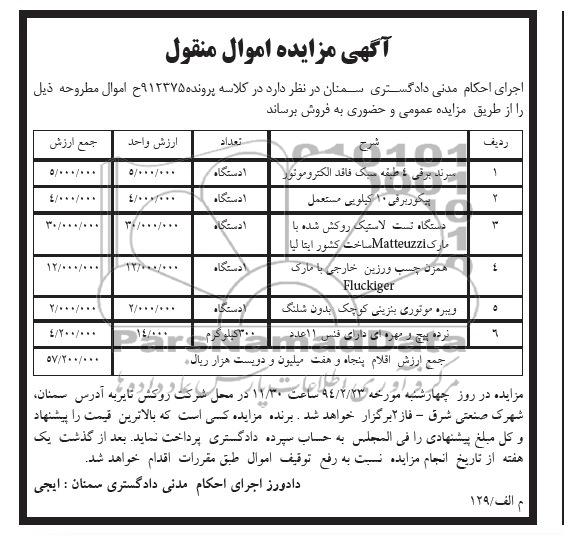 آگهی مزایده اموال منقول
اجرای احکام مدنی دادگستری سمنان در نظر دارد در کلاسه پرونده ۹۱۲۳۷۵ح اموال مطروحه ذیل
را از طریق مزایده عمومی و حضوری به فروش برساند
ردیف شرح تعداد ارزش واحد جمع ارزش
۱ سرند برقی ۴ طبقه سبک فاقد الکتروموتور ۱دستگاه ۵/۰۰۰/۰۰۰ ۵/۰۰۰/۰۰۰
۲ پیکوربرقی ۱۰ کیلویی مستعمل ۱دستگاه ۴/۰۰۰/۰۰۰ ۴/۰۰۰/۰۰۰
۳ دستگاه تست لاستیک روکش شده با ۱دستگاه ۳۰/۰۰۰/۰۰۰ ۳۰/۰۰۰/۰۰۰
مارک Matteuzzi ساخت کشور ایتا لیا
۴ همزن چسب ورزین خارجی با مارک ۱دستگاه ۱۲/۰۰۰/۰۰۰ ۱۲/۰۰۰/۰۰۰
Fluckiger
۵ ویبره موتوری بنزینی کوچک بدون شلنگ ۱دستگاه ۲/۰۰۰/۰۰۰ ۲/۰۰۰/۰۰۰
۶ نرده پیچ و مهره ای دارای فنس ۱۱عدد ۳۰۰کیلوگرم ۱۴/۰۰۰ ۴/۲۰۰/۰۰۰
جمع ارزش اقلام پنجاه و هفت میلیون و دویست هزار ریال ۵۷/۲۰۰/۰۰۰
مزایده در روز چهارشنبه مورخه ۹۴/۲/۲۳ ساعت ۱۱/۳۰ در محل شرکت روکش تایربه آدرس سمنان،
شهرک صنعتی شرق – فاز۲برگزار خواهد شد . برنده مزایده کسی است که بالاترین قیمت را پیشنهاد
و کل مبلغ پیشنهادی را فی المجلس به حساب سپرده دادگستری پرداخت نماید. بعد از گذشت یک
هفته از تاریخ انجام مزایده نسبت به رفع توقیف اموال طبق مقررات اقدام خواهد شد.
دادورز اجرای احکام مدنی دادگستری سمنان : ایجی
م الف/۱۲۹
ParsNamadData